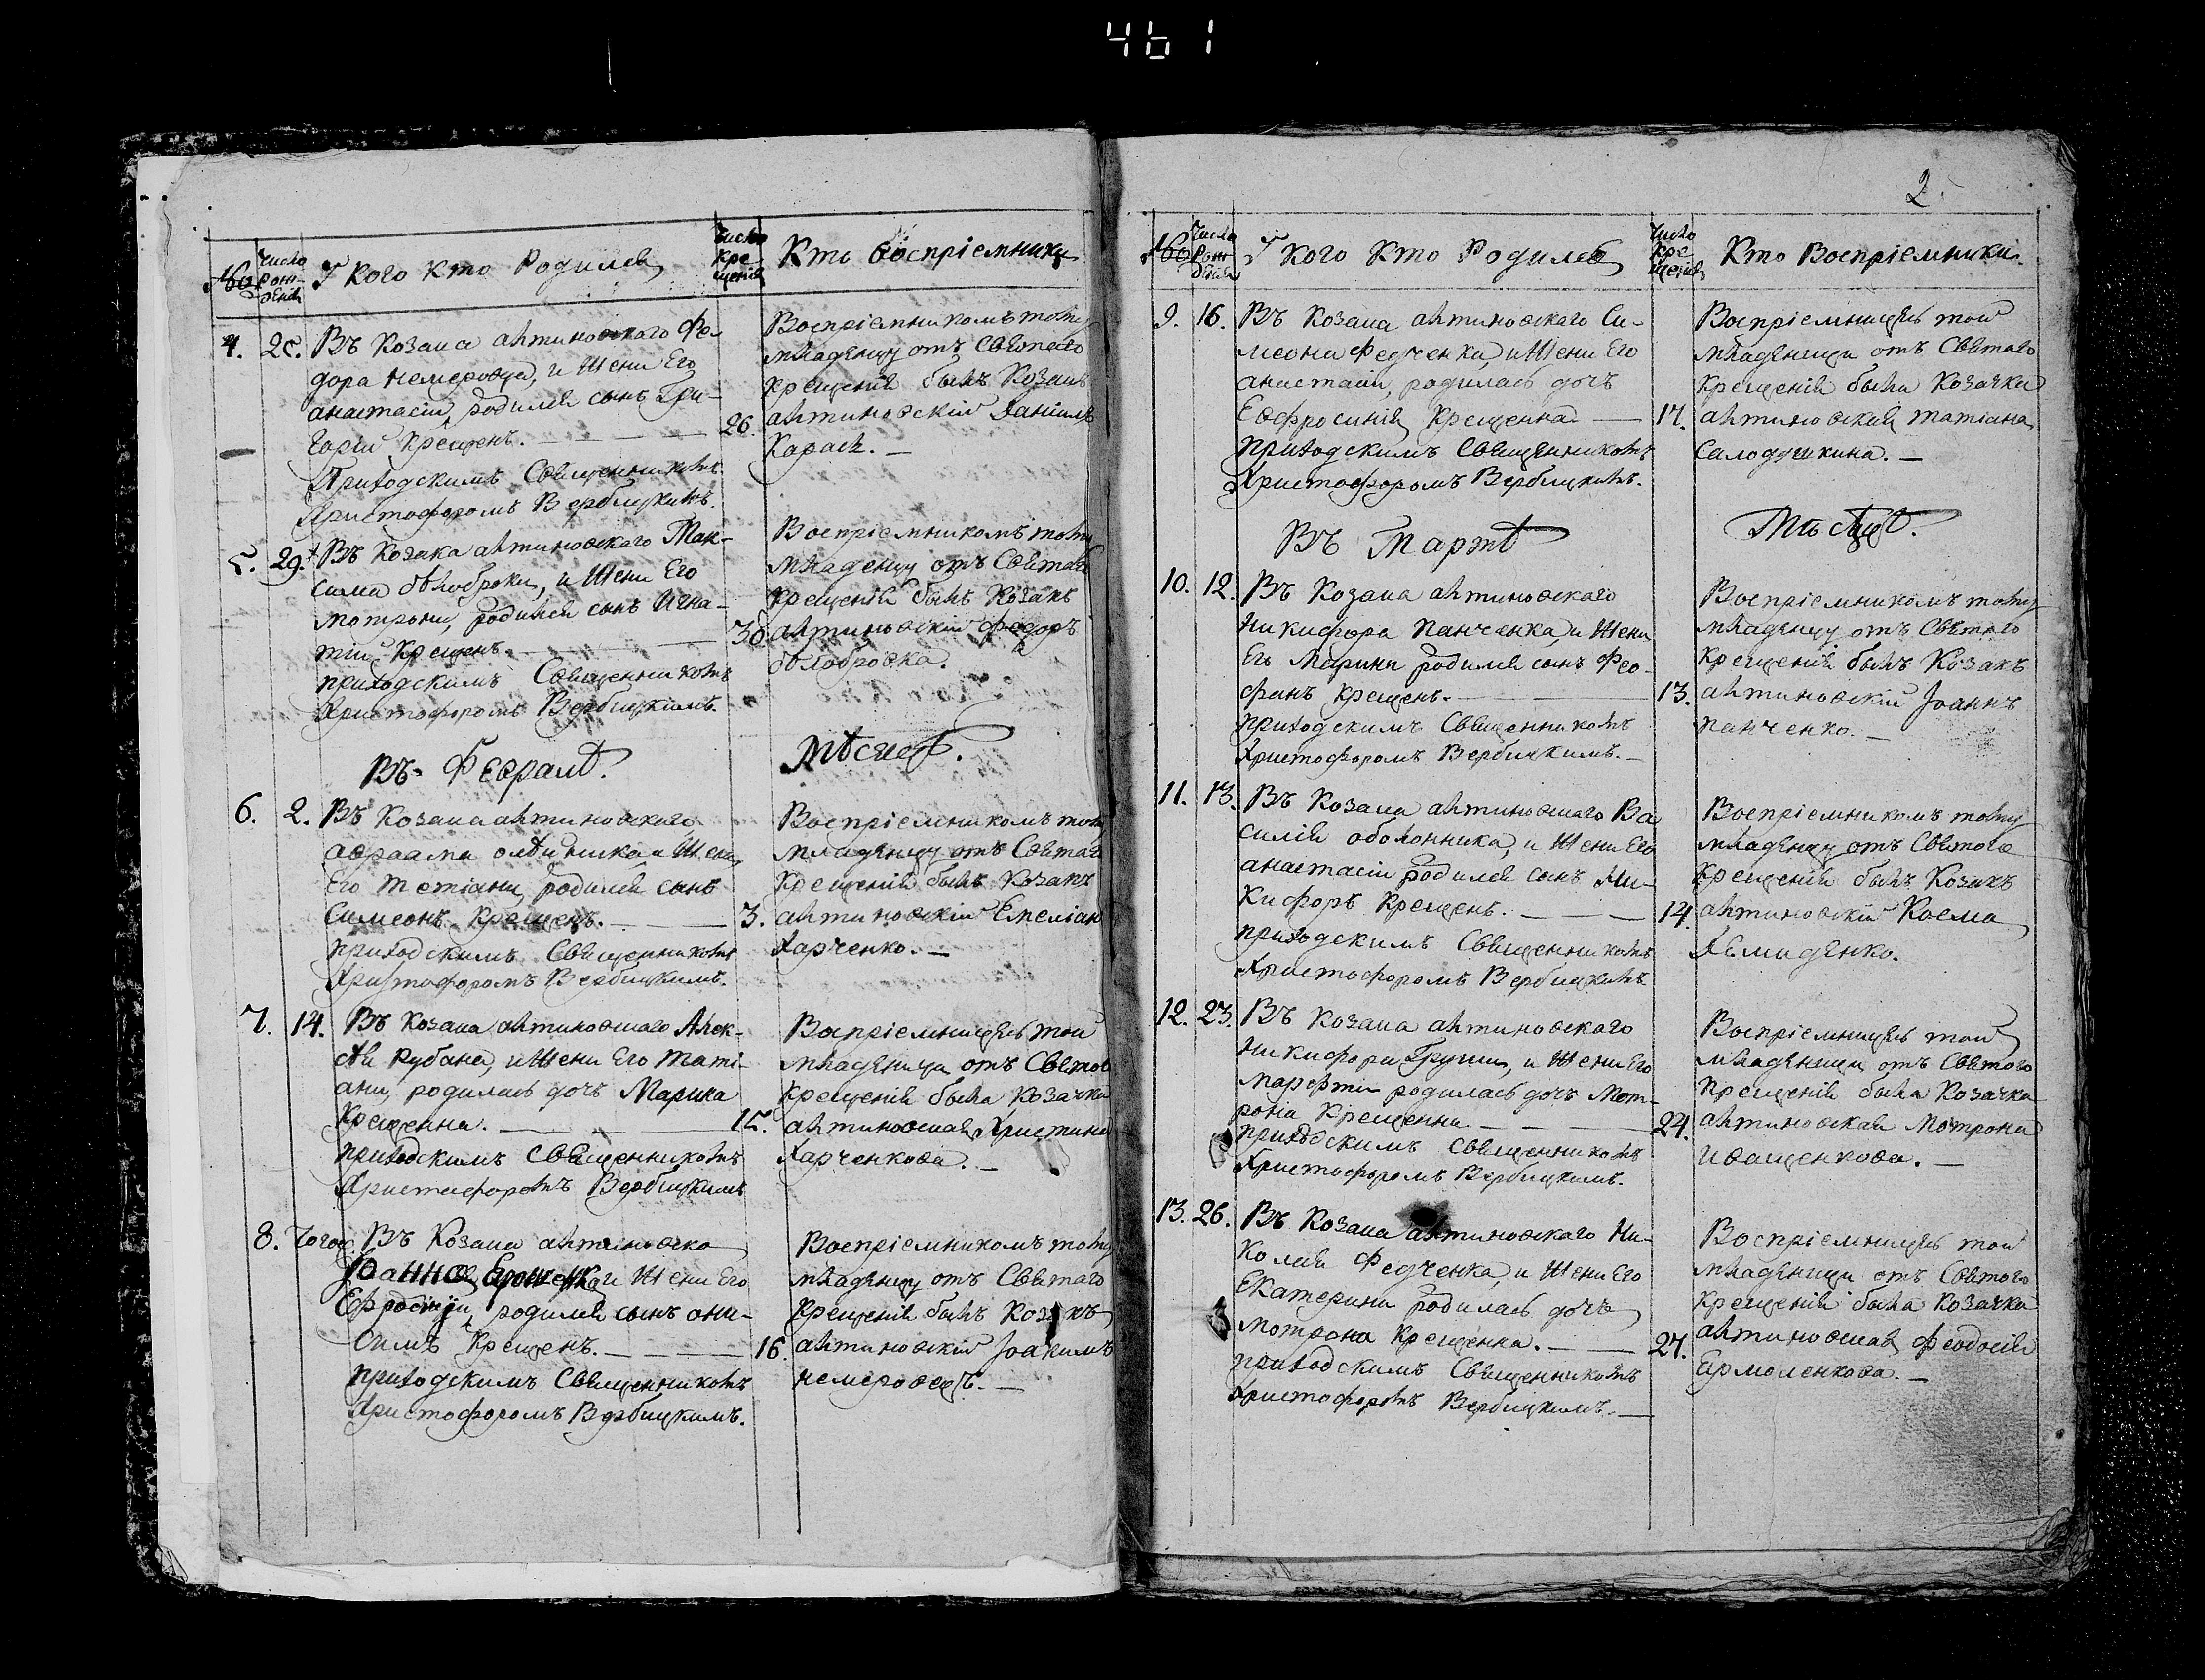 461
№
Число
Рож-
денія
У Кого Кто Родился
Число
Кре
щенія
Кто Воспріемники
4. 25. Въ Козака алтиновского Фе-
дора Немеровца, и Жени Его
анастасіи, родился сынъ Гри-
горій Крещенъ. 26.
Приходскимъ Священникомъ
Христофоромъ Вербицкимъ.
Воспріемникомъ тому
младенцу отъ Святаго
Крещенія былъ Козакъ
алтиновскій Даніилъ
Карась.
5. 29. Въ Козака алтиновского Мак-
сима бѣлобровки, и Жени Его
мотрони, родился сынъ Игна-
тій Крещенъ. 30.
приходскимъ Священникомъ
Христофоромъ Вербицкимъ.
Воспріемникомъ тому
младенцу отъ Святаго
Крещенія былъ Козакъ
алтиновскій Федоръ
бѣлобровка.
Въ Февралѣ. Мѣсяцѣ.
6. 2. Въ Козака алтиновского
авраама олѣйника и Жени
Его Тетіани, родился сынъ
Симеонъ Крещенъ. 3.
приходскимъ Священникомъ
Христофоромъ Вербицкимъ.
Воспріемникомъ тому
младенцу отъ Святаго
Крещенія былъ Козакъ
алтиновскій Емеліанъ
Харченко.
7. 14. Въ Козака алтиновского Алек-
сѣя Рубана, и Жени Его Таті-
ани, родилась дочъ Марина
Крещенна. 15.
приходскимъ Священникомъ
Христофоромъ Вербицкимъ
Воспріемницею той
младеници отъ Святого
Крещенія была Козачка
алтиновская Христина
Харченкова.
8. Тогож Въ Козака алтиновско
Іоанна и Жени Его
Ефросиніи, родился сынъ они-
симъ Крещенъ. 16.
приходскимъ Священникомъ
Христофоромъ Вербицкимъ.
Воспріемникомъ тому
младенцу отъ Святаго
Крещенія былъ Козакъ
алтиновскій Іоакимъ
немеровецъ.
2.
№
Число
Рож-
денія
У Кого Кто Родился
Число
Кре
щенія
Кто Воспріемники.
9. 16. Въ Козака алтиновского Си-
меона Федченка, и Жени Его
анастасіи, родилась дочъ
Евфросинія Крещенна 17.
приходскимъ Священникомъ
Христофоромъ Вербицкимъ.
Воспріемницею той
младеници отъ Святаго
Крещенія была Козачка
алтиновская татіана
Салодушкина.
Въ Мартѣ Мѣсяцѣ.
10. 12. Въ Козака алтиновского
Никифора Панченка, и Жени
Его Марини родился сынъ Фео-
фанъ Крещенъ. 13.
приходскимъ Священникомъ
Христофоромъ Вербицкимъ.
Воспріемникомъ тому
младенцу отъ Святого
Крещенія былъ Козакъ
алтиновскій Іоаннъ
панченко.
11. 13. Въ Козака алтиновского Ва
силія оболонника, и Жени Его
анастасіи родился сынъ Ни-
кифоръ Крещенъ. 14.
приходскимъ Священникомъ
Христофоромъ Вербицкимъ
Воспріемникомъ тому
младенцу отъ Святого
Крещенія былъ Козакъ
алтиновскій Косма
12. 23. Въ Козака алтиновского
Никифора Груши, и Жени Его
Марфи родилась дочъ Мот-
рона Крещенна. 24.
приходскимъ Священникомъ
Христофоромъ Вербицкимъ.
Воспріемницею той
младеници отъ Святого
Крещенія была Козачка
алтиновская Мотрона
Иващенкова.
13. 26. Въ Козака алтиновского Ни-
колая Федченка, и Жени Его
Екатерини родилась дочъ
мотрона Крещенна. 27.
приходскимъ Священникомъ
Христофоромъ Вербицкимъ.
Воспріемницею той
младеници отъ Святого
Крещенія была Козачка
алтиновская Феодосія
Ермоленкова.